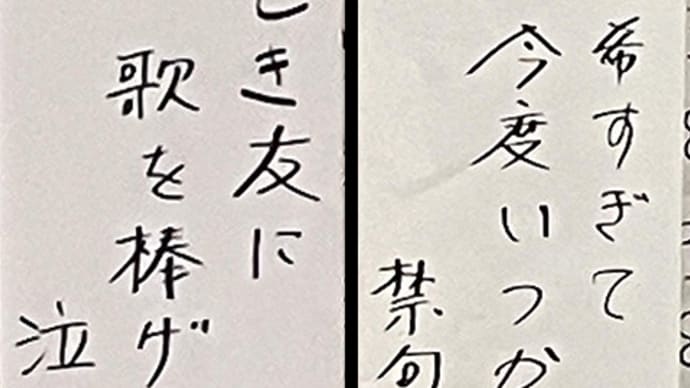 き友に
歌を棒げ
泣
希すぎて
今度いつか
禁句